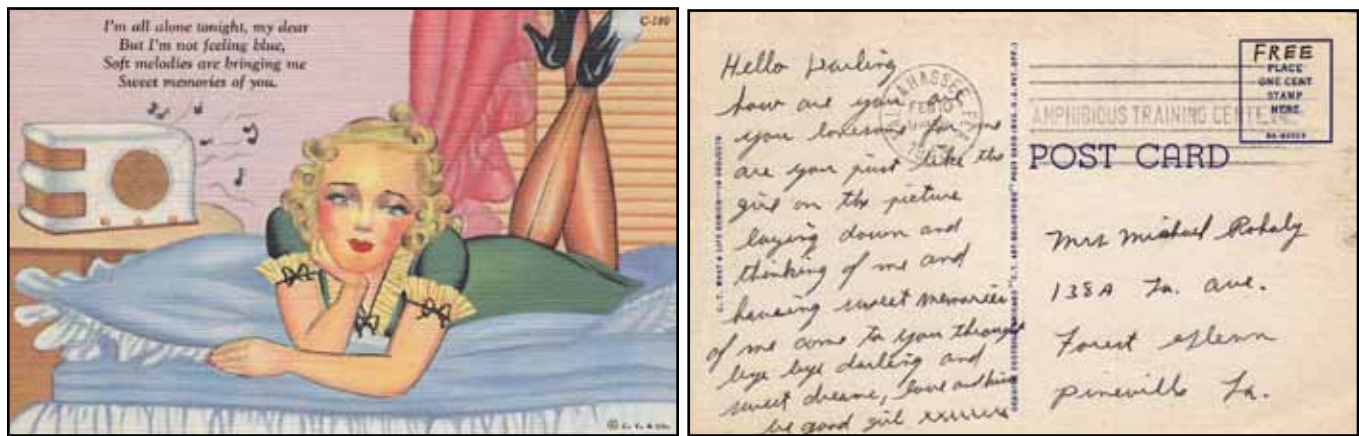 C-180
I'm all alone tonight, my dear
But I'm not feeling blue,
Soft melodies are bringing me
Sweet memories of you.
Hello Darling
how are you are
you lonesome for me
are you just like the
girl on the picture
laying down and
thinking of me and
haveing sweet memories
of me come to you thought
bye bye darling and
sweet dreams, love and kisses
be good girl xxxxxxx
TALLAHASSEE, FLA.
FEB 10
AMPHIBIOUS TRAINING CENTER
FREE
PLACE
ONE CENT
STAMP
HERE
POST CARD
Mrs Michael Rohaly
138A La. ave.
Forest Glenn
pineville La.